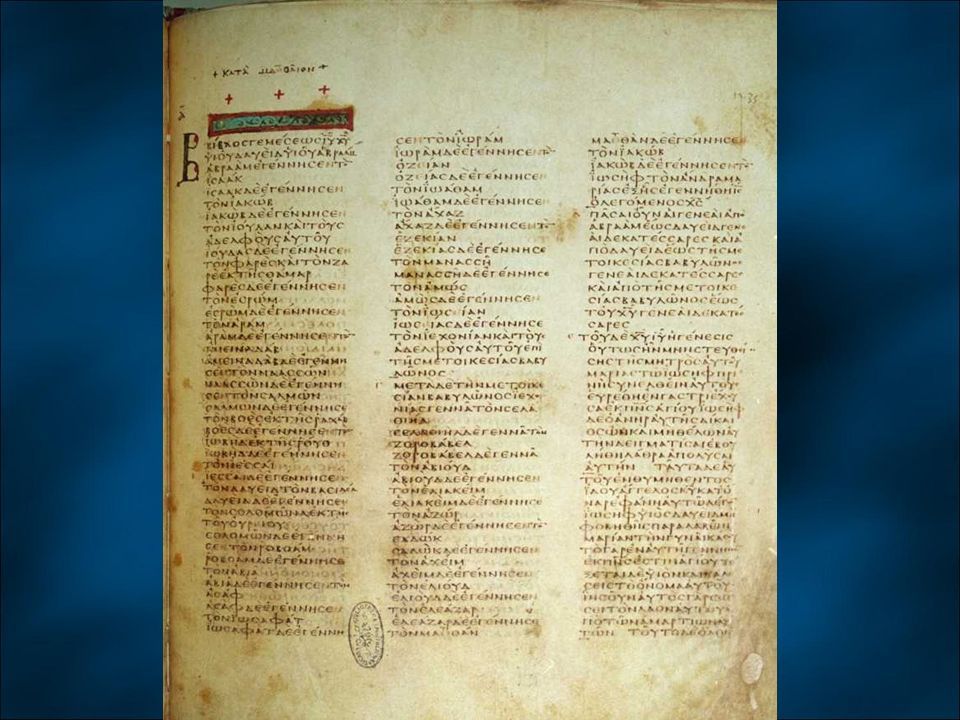 + ΚΑΤΑ ΜΑΘΘΑΙΟΝ +
ΒΙΒΛΟΣΓΕΝΕΣΕΩΣΙΥΧΥ
ΥΙΟΥΔΑΥΕΙΔΥΙΟΥΑΒΡΑΑΜ
ΑΒΡΑΑΜΕΓΕΝΝΗΣΕΝΤΟ
ΙΣΑΑΚ
ΙΣΑΑΚΔΕΕΓΕΝΝΗΣΕΝ
ΤΟΝΙΑΚΩΒ
ΙΑΚΩΒΔΕΕΓΕΝΝΗΣΕ
ΤΟΝΙΟΥΔΑΝΚΑΙΤΟΥΣ
ΑΔΕΛΦΟΥΣΑΥΤΟΥ
ΙΟΥΔΑΣΔΕΕΓΕΝΝΗΣΕΝ
ΤΟΝΦΑΡΕΣΚΑΙΤΟΝΖΑ
ΡΕΕΚΤΗΣΘΑΜΑΡ
ΦΑΡΕΣΔΕΕΓΕΝΝΗΣΕΝ
ΤΟΝΕΣΡΩΜ
ΕΣΡΩΜΔΕΕΓΕΝΝΗΣΕΝ
ΤΟΝΑΡΑΜ
ΑΡΑΜΔΕΕΓΕΝΝΗΣΕΝΤΟ
ΑΜΕΙΝΑΔΑΒ
ΑΜΕΙΝΑΔΑΒΔΕΕΓΕΝΝΗ
ΣΕΝΤΟΝΝΑΑΣΣΩΝ
ΝΑΑΣΣΩΝΔΕΕΓΕΝΝΗ
ΣΕΝΤΟΝΣΑΛΜΩΝ
ΣΑΛΜΩΝΔΕΕΓΕΝΝΗΣΕ
ΤΟΝΒΟΕΣΕΚΤΗΣΡΑΧΑΒ
ΒΟΕΣΔΕΕΓΕΝΝΗΣΕΝ
ΙΩΒΗΔΕΚΤΗΣΡΟΥΘ
ΙΩΒΗΔΔΕΕΓΕΝΝΗΣΕΝ
ΤΟΝΙΕΣΣΑΙ
ΙΕΣΣΑΙΔΕΕΓΕΝΝΗΣΕΝ
ΤΟΝΔΑΥΕΙΔΤΟΝΒΑΣΙΛΕΑ
ΔΑΥΕΙΔΔΕΕΓΕΝΝΗΣΕΝ
ΤΟΝΣΟΛΟΜΩΝΑΕΚΤΗΣ
ΤΟΥΟΥΡΙΟΥ
ΣΟΛΟΜΩΝΔΕΕΓΕΝΝΗ
ΣΕΝΤΟΝΡΟΒΟΑΜ
ΡΟΒΟΑΜΔΕΕΓΕΝΝΗΣΕΝ
ΤΟΝΑΒΙΑ
ΑΒΙΑΔΕΕΓΕΝΝΗΣΕΝΤΟΝ
ΑΣΑΦ
ΑΣΑΦΔΕΕΓΕΝΝΗΣΕΝ
ΤΟΝΙΩΣΑΦΑΤ
ΙΩΣΑΦΑΤΔΕΕΓΕΝΝΗ
ΣΕΝΤΟΝΙΩΡΑΜ
ΙΩΡΑΜΔΕΕΓΕΝΝΗΣΕΝΤΟ
ΟΖΕΙΑΝ
ΟΖΕΙΑΣΔΕΕΓΕΝΝΗΣΕΝ
ΤΟΝΙΩΑΘΑΜ
ΙΩΑΘΑΜΔΕΕΓΕΝΝΗΣΕΝ
ΤΟΝΑΧΑΖ
ΑΧΑΖΔΕΕΓΕΝΝΗΣΕΝΤΟ
ΕΖΕΚΙΑΝ
ΕΖΕΚΙΑΣΔΕΕΓΕΝΝΗΣΕ
ΤΟΝΜΑΝΑΣΣΗ
ΜΑΝΑΣΣΗΔΕΕΓΕΝΝΗΣΕ
ΤΟΝΑΜΩΣ
ΑΜΩΣΔΕΕΓΕΝΝΗΣΕΝ
ΤΟΝΙΩΣΕΙΑΝ
ΙΩΣΕΙΑΣΔΕΕΓΕΝΝΗΣΕ
ΤΟΝΙΕΧΟΝΙΑΝΚΑΙΤΟΥΣ
ΑΔΕΛΦΟΥΣΑΥΤΟΥΕΠΙ
ΤΗΣΜΕΤΟΙΚΕΣΙΑΣΒΑΒΥ
ΛΩΝΟΣ
ΜΕΤΑΔΕΤΗΝΜΕΤΟΙΚΕ
ΣΙΑΝΒΑΒΥΛΩΝΟΣΙΕΧΟ
ΝΙΑΣΓΕΝΝΑΤΟΝΣΕΛΑ
ΘΙΗΛ
ΣΕΛΑΘΙΗΛΔΕΓΕΝΝΑΤΟΝ
ΖΟΡΟΒΑΒΕΛ
ΖΟΡΟΒΑΒΕΛΔΕΓΕΝΝΑ
ΤΟΝΑΒΙΟΥΔ
ΑΒΙΟΥΔΔΕΕΓΕΝΝΗΣΕΝ
ΤΟΝΕΛΙΑΚΕΙΜ
ΕΛΙΑΚΕΙΜΔΕΕΓΕΝΝΗΣΕ
ΤΟΝΑΖΩΡ
ΑΖΩΡΔΕΕΓΕΝΝΗΣΕΝΤΟ
ΣΑΔΩΚ
ΣΑΔΩΚΔΕΕΓΕΝΝΗΣΕΝ
ΤΟΝΑΧΕΙΜ
ΑΧΕΙΜΔΕΕΓΕΝΝΗΣΕΝ
ΤΟΝΕΛΙΟΥΔ
ΕΛΙΟΥΔΔΕΕΓΕΝΝΗΣΕΝ
ΤΟΝΕΛΕΑΖΑΡ
ΕΛΕΑΖΑΡΔΕΕΓΕΝΝΗΣΕ
ΤΟΝΜΑΘΘΑΝ
ΜΑΘΘΑΝΔΕΕΓΕΝΝΗΣΕΝ
ΤΟΝΙΑΚΩΒ
ΙΑΚΩΒΔΕΕΓΕΝΝΗΣΕΝΤΟ
ΙΩΣΗΦΤΟΝΑΝΔΡΑΜΑ
ΡΙΑΣΕΞΗΣΕΓΕΝΝΗΘΗΙΣ
ΟΛΕΓΟΜΕΝΟΣΧΣ
ΠΑΣΑΙΟΥΝΑΙΓΕΝΕΑΙΑΠΟ
ΑΒΡΑΑΜΕΩΣΔΑΥΕΙΔΓΕΝΕ
ΑΙΔΕΚΑΤΕΣΣΑΡΕΣΚΑΙΑ
ΠΟΔΑΥΕΙΔΕΩΣΤΗΣΜΕ
ΤΟΙΚΕΣΙΑΣΒΑΒΥΛΩΝΟΣ
ΓΕΝΕΑΙΔΕΚΑΤΕΣΣΑΡΕΣ
ΚΑΙΑΠΟΤΗΣΜΕΤΟΙΚΕ
ΣΙΑΣΒΑΒΥΛΩΝΟΣΕΩΣ
ΤΟΥΧΥΓΕΝΕΑΙΔΕΚΑΤΕΣ
ΣΑΡΕΣ
ΤΟΥΔΕΧΥΙΥΗΓΕΝΕΣΙΣ
ΟΥΤΩΣΗΝΜΝΗΣΤΕΥΘΕΙ
ΣΗΣΤΗΣΜΗΤΡΟΣΑΥΤΟΥ
ΜΑΡΙΑΣΤΩΙΩΣΗΦΠΡΙ
ΝΗΣΥΝΕΛΘΕΙΝΑΥΤΟΥΣ
ΕΥΡΕΘΗΕΝΓΑΣΤΡΙΕΧΟΥ
ΣΑΕΚΠΝΣΑΓΙΟΥΙΩΣΗΦ
ΔΕΟΑΝΗΡΑΥΤΗΣΔΙΚΑΙ
ΟΣΩΝΚΑΙΜΗΘΕΛΩΝΑΥ
ΤΗΝΔΕΙΓΜΑΤΙΣΑΙΕΒΟΥ
ΛΗΘΗΛΑΘΡΑΑΠΟΛΥΣΑΙ
ΑΥΤΗΝ ΤΑΥΤΑΔΕΑΥ
ΤΟΥΕΝΘΥΜΗΘΕΝΤΟΣ
ΙΔΟΥΑΓΓΕΛΟΣΚΥΚΑΤΟ
ΝΑΡΕΦΑΝΗΑΥΤΩΛΕΓΩ
ΙΩΣΗΦΥΙΟΣΔΑΥΕΙΔΜΗ
ΦΟΒΗΘΗΣΠΑΡΑΛΑΒΕΙ
ΜΑΡΙΑΝΤΗΝΓΥΝΑΙΚΑΣΟΥ
ΤΟΓΑΡΕΝΑΥΤΗΓΕΝΝΗΘΕ
ΕΚΠΝΣΕΣΤΙΝΑΓΙΟΥΤΕ
ΞΕΤΑΙΔΕΥΙΟΝΚΑΙΚΑΛΕ
ΣΕΙΣΤΟΟΝΟΜΑΑΥΤΟΥ
ΙΗΣΟΥΝΑΥΤΟΣΓΑΡΣΩ
ΣΕΙΤΟΝΛΑΟΝΑΥΤΟΥΑ
ΠΟΤΩΝΑΜΑΡΤΙΩΝΑΥ
ΤΩΝ ΤΟΥΤΟΔΕΟΛΟΝ